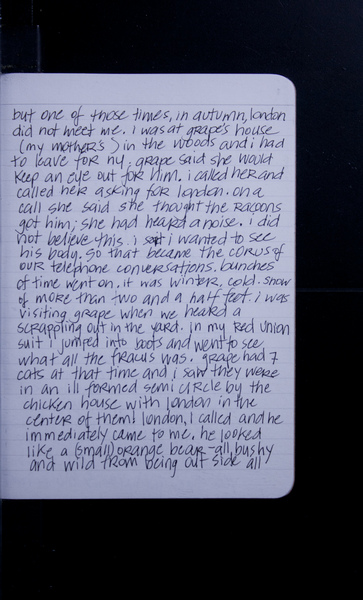 but one of those times, in autumn, london
did not meet me. i was at grape's house
(my mother's) in the woods and i had
to leave for ny. grape said she would
keep an eye out for him. i called her and
called her asking for london. on a
call she said she thought the racoons
got him; she had heard a noise. i did
not believe this. i said i wanted to see
his body. so that became the corus of
our telephone conversations. bunches
of time went on. it was winter, cold. snow
of more than two and a half feet. i was
visiting grape when we heard a
scrappoling out in the yard. in my red union
suit i jumped into boots and went to see
what all the fracus was. grape had 7
cats at that time and i saw they were
in an ill formed semi circle by the
chicken house with london in the
center of them! london, i called and he
immediately came to me. he looked
like a (small) orange bear - all bushy
and wild from being out side all